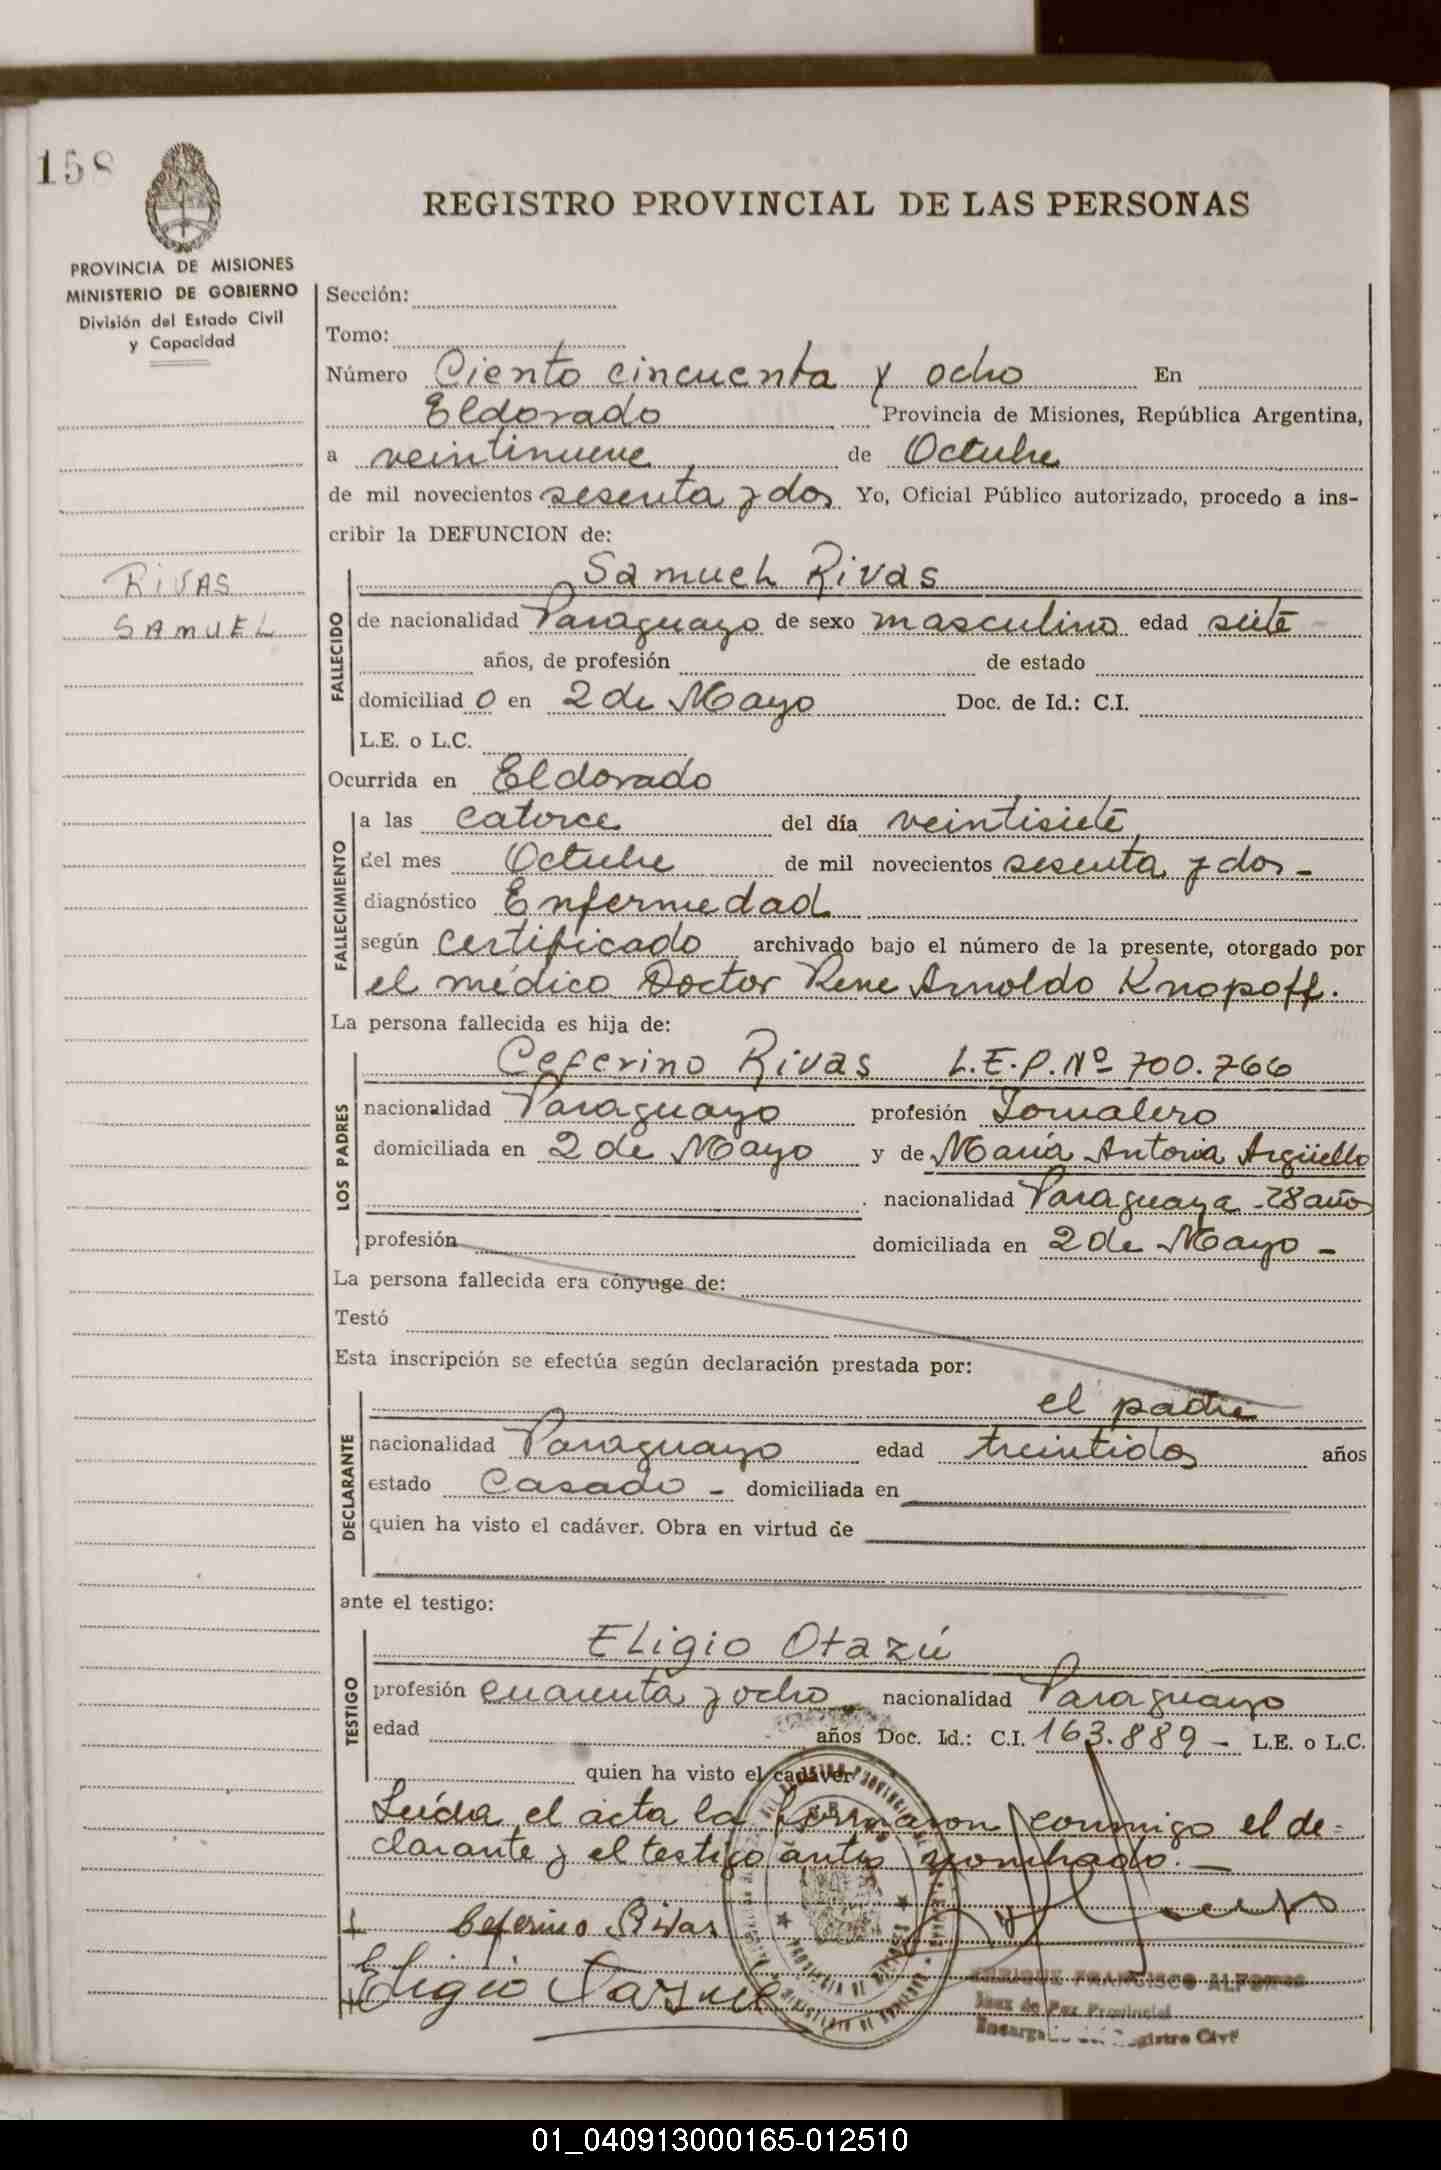 158
REGISTRO PROVINCIAL DE LAS PERSONAS
PROVINCIA DE MISIONES
MINISTERIO DE GOBIERNO
División del Estado Civil
y Capacidad
Sección:
Tomo:
Número Ciento cincuenta y ocho En
Eldorado Provincia de Misiones, República Argentina,
a veintinueve de Octubre
de mil novecientos sesenta y dos Yo, Oficial Público autorizado, procedo a ins-
cribir la DEFUNCION de:
RIVAS
SAMUEL
FALLECIDO
Samuel Rivas
de nacionalidad Paraguayo de sexo masculino edad siete
años, de profesión de estado
domiciliad o en 2 de Mayo Doc. de Id.: C.I.
L.E. o L.C.
Ocurrida en Eldorado
FALLECIMIENTO
a las catorce del día veintisiete
del mes Octubre de mil novecientos sesenta y dos -
diagnóstico Enfermedad
según certificado archivado bajo el número de la presente, otorgado por
el médico Doctor Rene Arnoldo Knopoff.
La persona fallecida es hija de:
LOS PADRES
Ceferino Rivas L.E.P. Nº 700.766
nacionalidad Paraguayo profesión Jornalero
domiciliada en 2 de Mayo y de María Antonia Argüello
nacionalidad Paraguaya - 28 años
profesión domiciliada en 2 de Mayo -
La persona fallecida era cónyuge de:
Testó
Esta inscripción se efectúa según declaración prestada por:
DECLARANTE
el padre
nacionalidad Paraguayo edad treintidos años
estado Casado - domiciliada en
quien ha visto el cadáver. Obra en virtud de
ante el testigo:
TESTIGO
Eligio Otazú
profesión cuarenta y ocho nacionalidad Paraguayo
edad años Doc. Id.: C.I. 163.889 - L.E. o L.C.
quien ha visto el cadáver
Leída el acta la firmaron conmigo el de-
clarante y el testigo antes nombrado. -
Ceferino Rivas
Eligio
ENRIQUE FRANCISCO ALFONSO
Juez de Paz Provincial
01_040913000165-012510